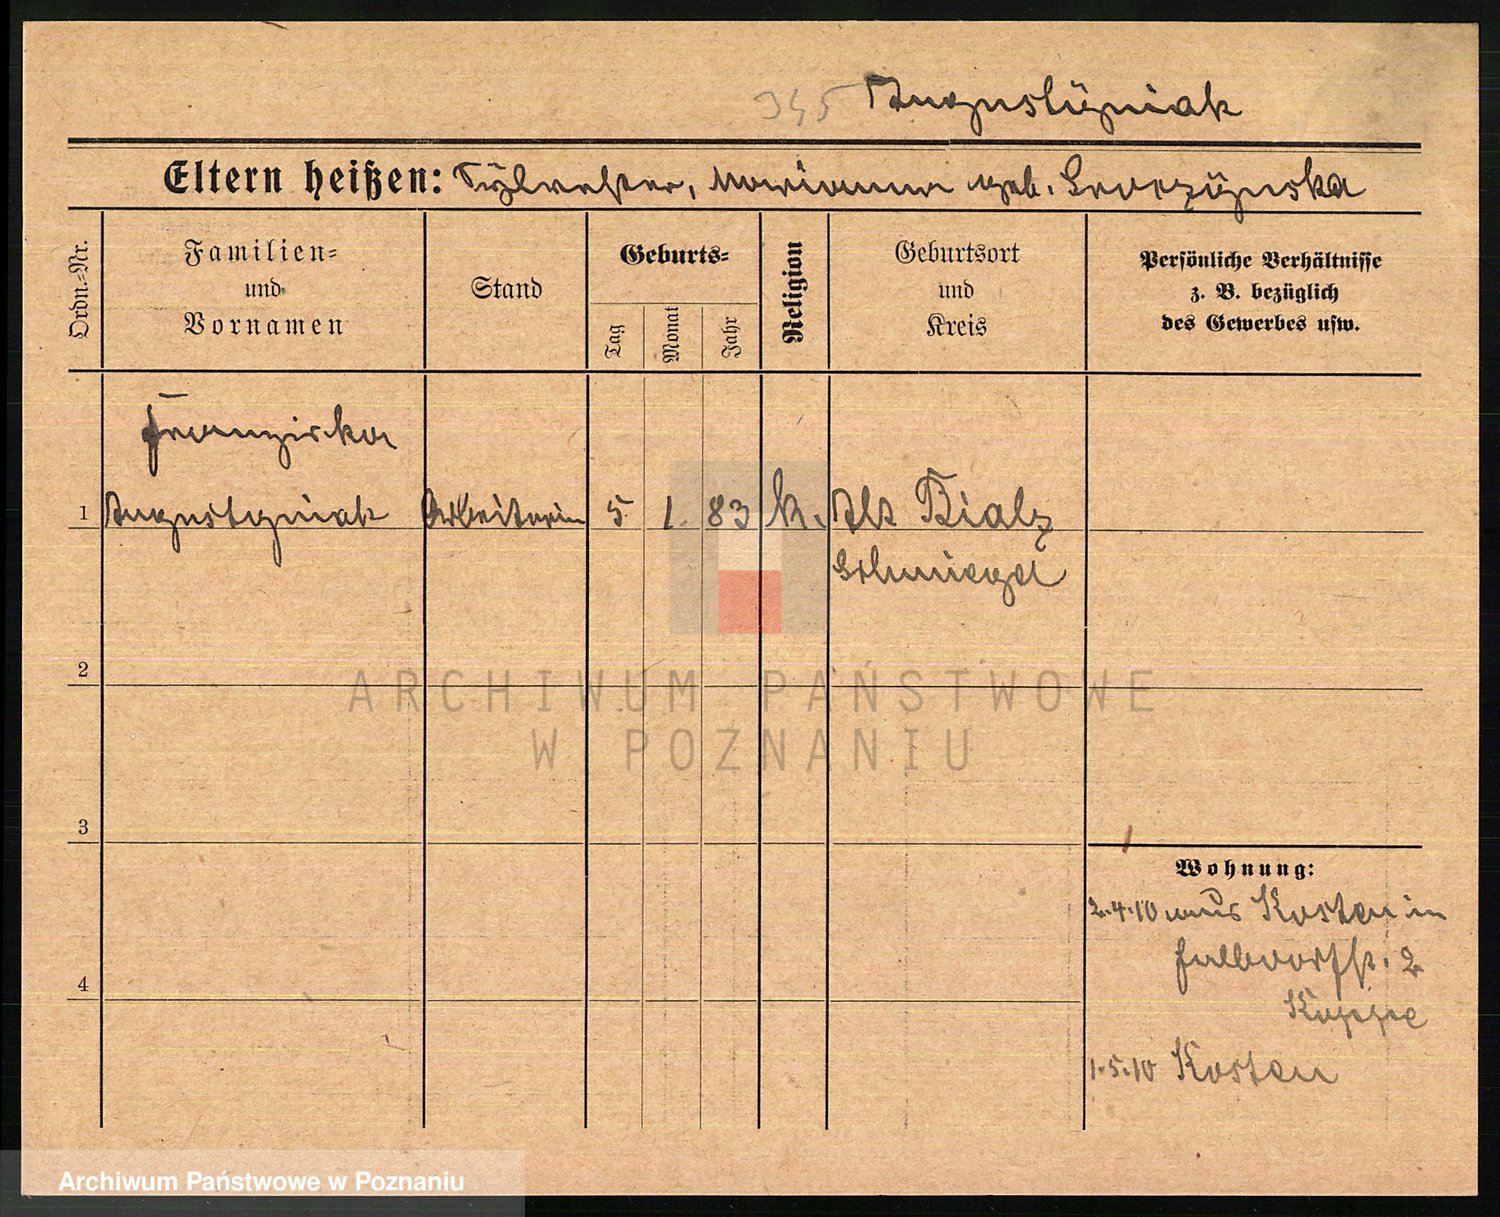 345 Augustyniak
Eltern heißen: Sylvester, Marianna geb. Skorzynska
Ordn.=Nr.
Familien=
und
Vornamen
Stand
Geburts=
Tag
Monat
Jahr
Religion
Geburtsort
und
Kreis
Persönliche Verhältnisse
z. B. bezüglich
des Gewerbes usw.
Franziska
1 Augustyniak Arbeiterin 5 1. 83 k. Alt Bialz
Schmiegel
2
ARCHIWUM PAŃSTWOWE
W POZNANIU
3
Wohnung:
2.4.10 aus Kosten in
2
4
Koppe
1.5.10 Kosten
Archiwum Państwowe w Poznaniu